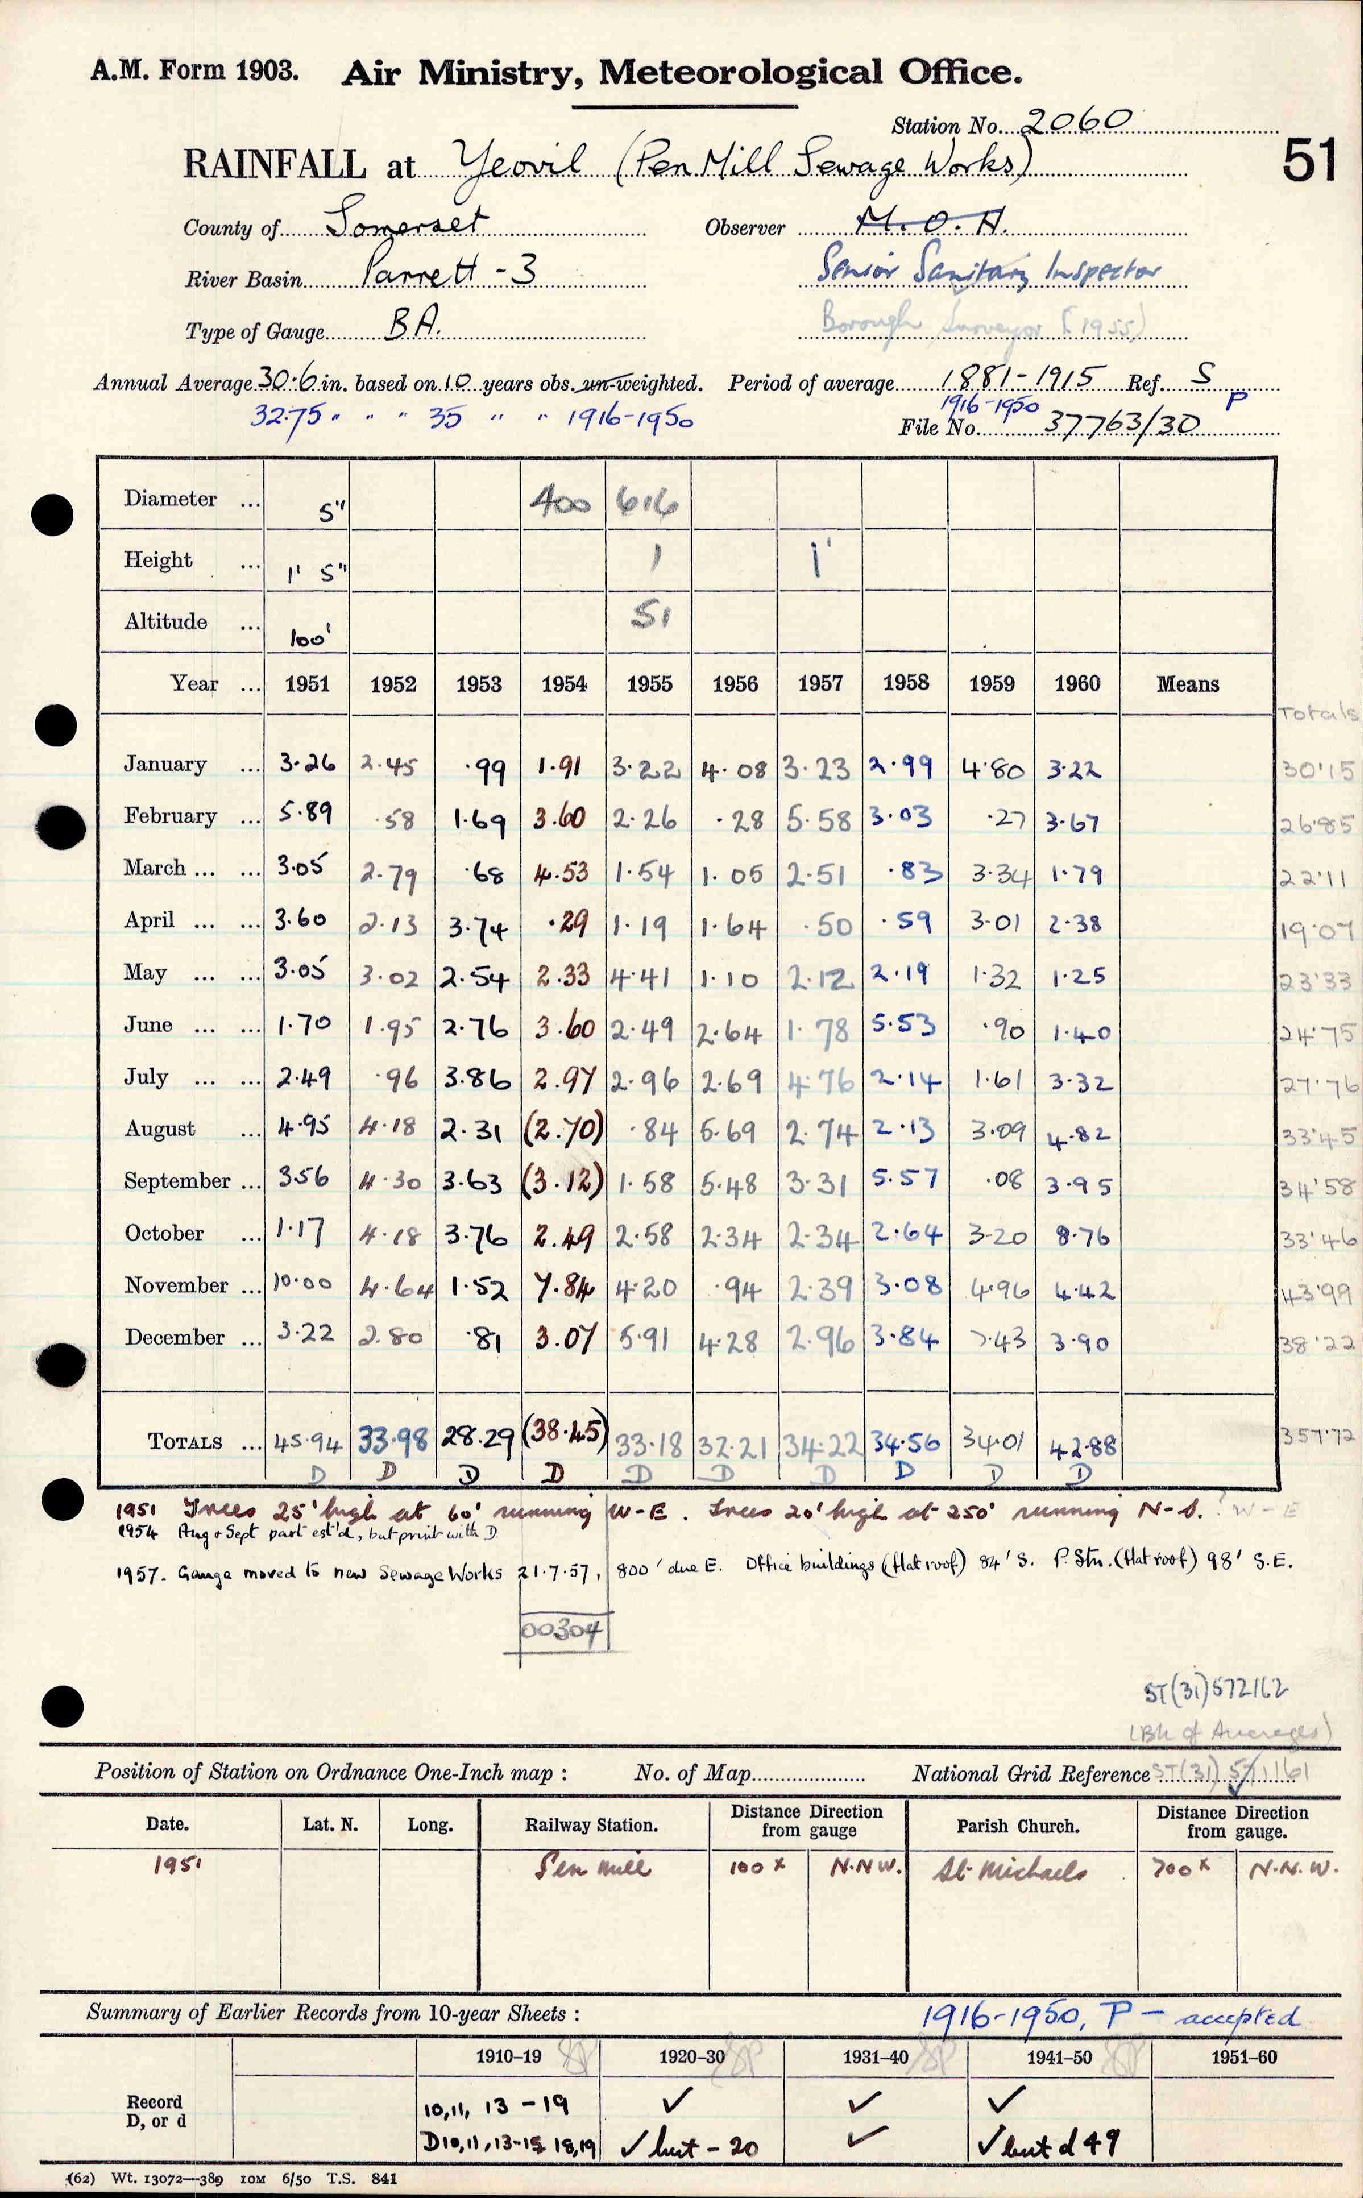 A.M. Form 1903. Air Ministry, Meteorological Office.
Station No. 2060
51
RAINFALL at Yeovil (Pen Mill Sewage Works)
County of Somerset Observer M.O.H.
River Basin Parrett - 3 Senior Sanitary Inspector
Type of Gauge BA. Borough Surveyor [1955)
Annual Average 30.6 in. based on 10 years obs. un-weighted. Period of average 1881-1915 Ref. S
32.75 " " " 35 " " 1916-1950 1916-1950 P
File No. 37763/30
Diameter ... 5" 400 616
Height ... 1' 5" 1 1'
Altitude ... 100' 51
Year ... 1951 1952 1953 1954 1955 1956 1957 1958 1959 1960 Means
Totals
January ... 3.26 2.45 .99 1.91 3.22 4.08 3.23 2.99 4.80 3.22 30.15
February ... 5.89 .58 1.69 3.60 2.26 .28 5.58 3.03 .27 3.67 26.85
March ... ... 3.05 2.79 .68 4.53 1.54 1.05 2.51 .83 3.34 1.79 22.11
April ... ... 3.60 2.13 3.74 .29 1.19 1.64 .50 .59 3.01 2.38 19.07
May ... ... 3.05 3.02 2.54 2.33 4.41 1.10 2.12 2.19 1.32 1.25 23.33
June ... ... 1.70 1.95 2.76 3.60 2.49 2.64 1.78 5.53 .90 1.40 24.75
July ... ... 2.49 .96 3.86 2.97 2.96 2.69 4.76 2.14 1.61 3.32 27.76
August ... 4.95 4.18 2.31 (2.70) .84 5.69 2.74 2.13 3.09 4.82 33.45
September ... 3.56 4.30 3.63 (3.12) 1.58 5.48 3.31 5.57 .08 3.95 34.58
October ... 1.17 4.18 3.76 2.49 2.58 2.34 2.34 2.64 3.20 8.76 33.46
November ... 10.00 4.64 1.52 7.84 4.20 .94 2.39 3.08 4.96 4.42 43.99
December ... 3.22 2.80 .81 3.07 5.91 4.28 2.96 3.84 7.43 3.90 38.22
TOTALS ... 45.94 33.98 28.29 (38.45) 33.18 32.21 34.22 34.56 34.01 42.88 357.72
D D D D D D D D D D
1951 Trees 25' high at 60' running W-E. Trees 20' high at 250' running N-S. ? W-E
1954 Aug & Sept part est'd, but print with D
1957. Gauge moved to new Sewage Works 21.7.57, 800' due E. Office buildings (flat roof) 84' S. P. Stn. (flat roof) 98' S.E.
00304
ST(31)572162
(Bk of Averages)
Position of Station on Ordnance One-Inch map : No. of Map National Grid Reference ST(31) 571161
Date. Lat. N. Long. Railway Station. Distance Direction from gauge Parish Church. Distance Direction from gauge.
1951 Pen Mill 100x N.N.W. St. Michaels 700x N.N.W.
Summary of Earlier Records from 10-year Sheets : 1916-1950, P - accepted
1910-19 1920-30 1931-40 1941-50 1951-60
Record 10,11, 13-19 ✓ ✓ ✓
D, or d D10,11,13-15, 18,19 ✓ but - 20 ✓ ✓ but d 49
(62) Wt. 13072—389 10M 6/50 T.S. 841